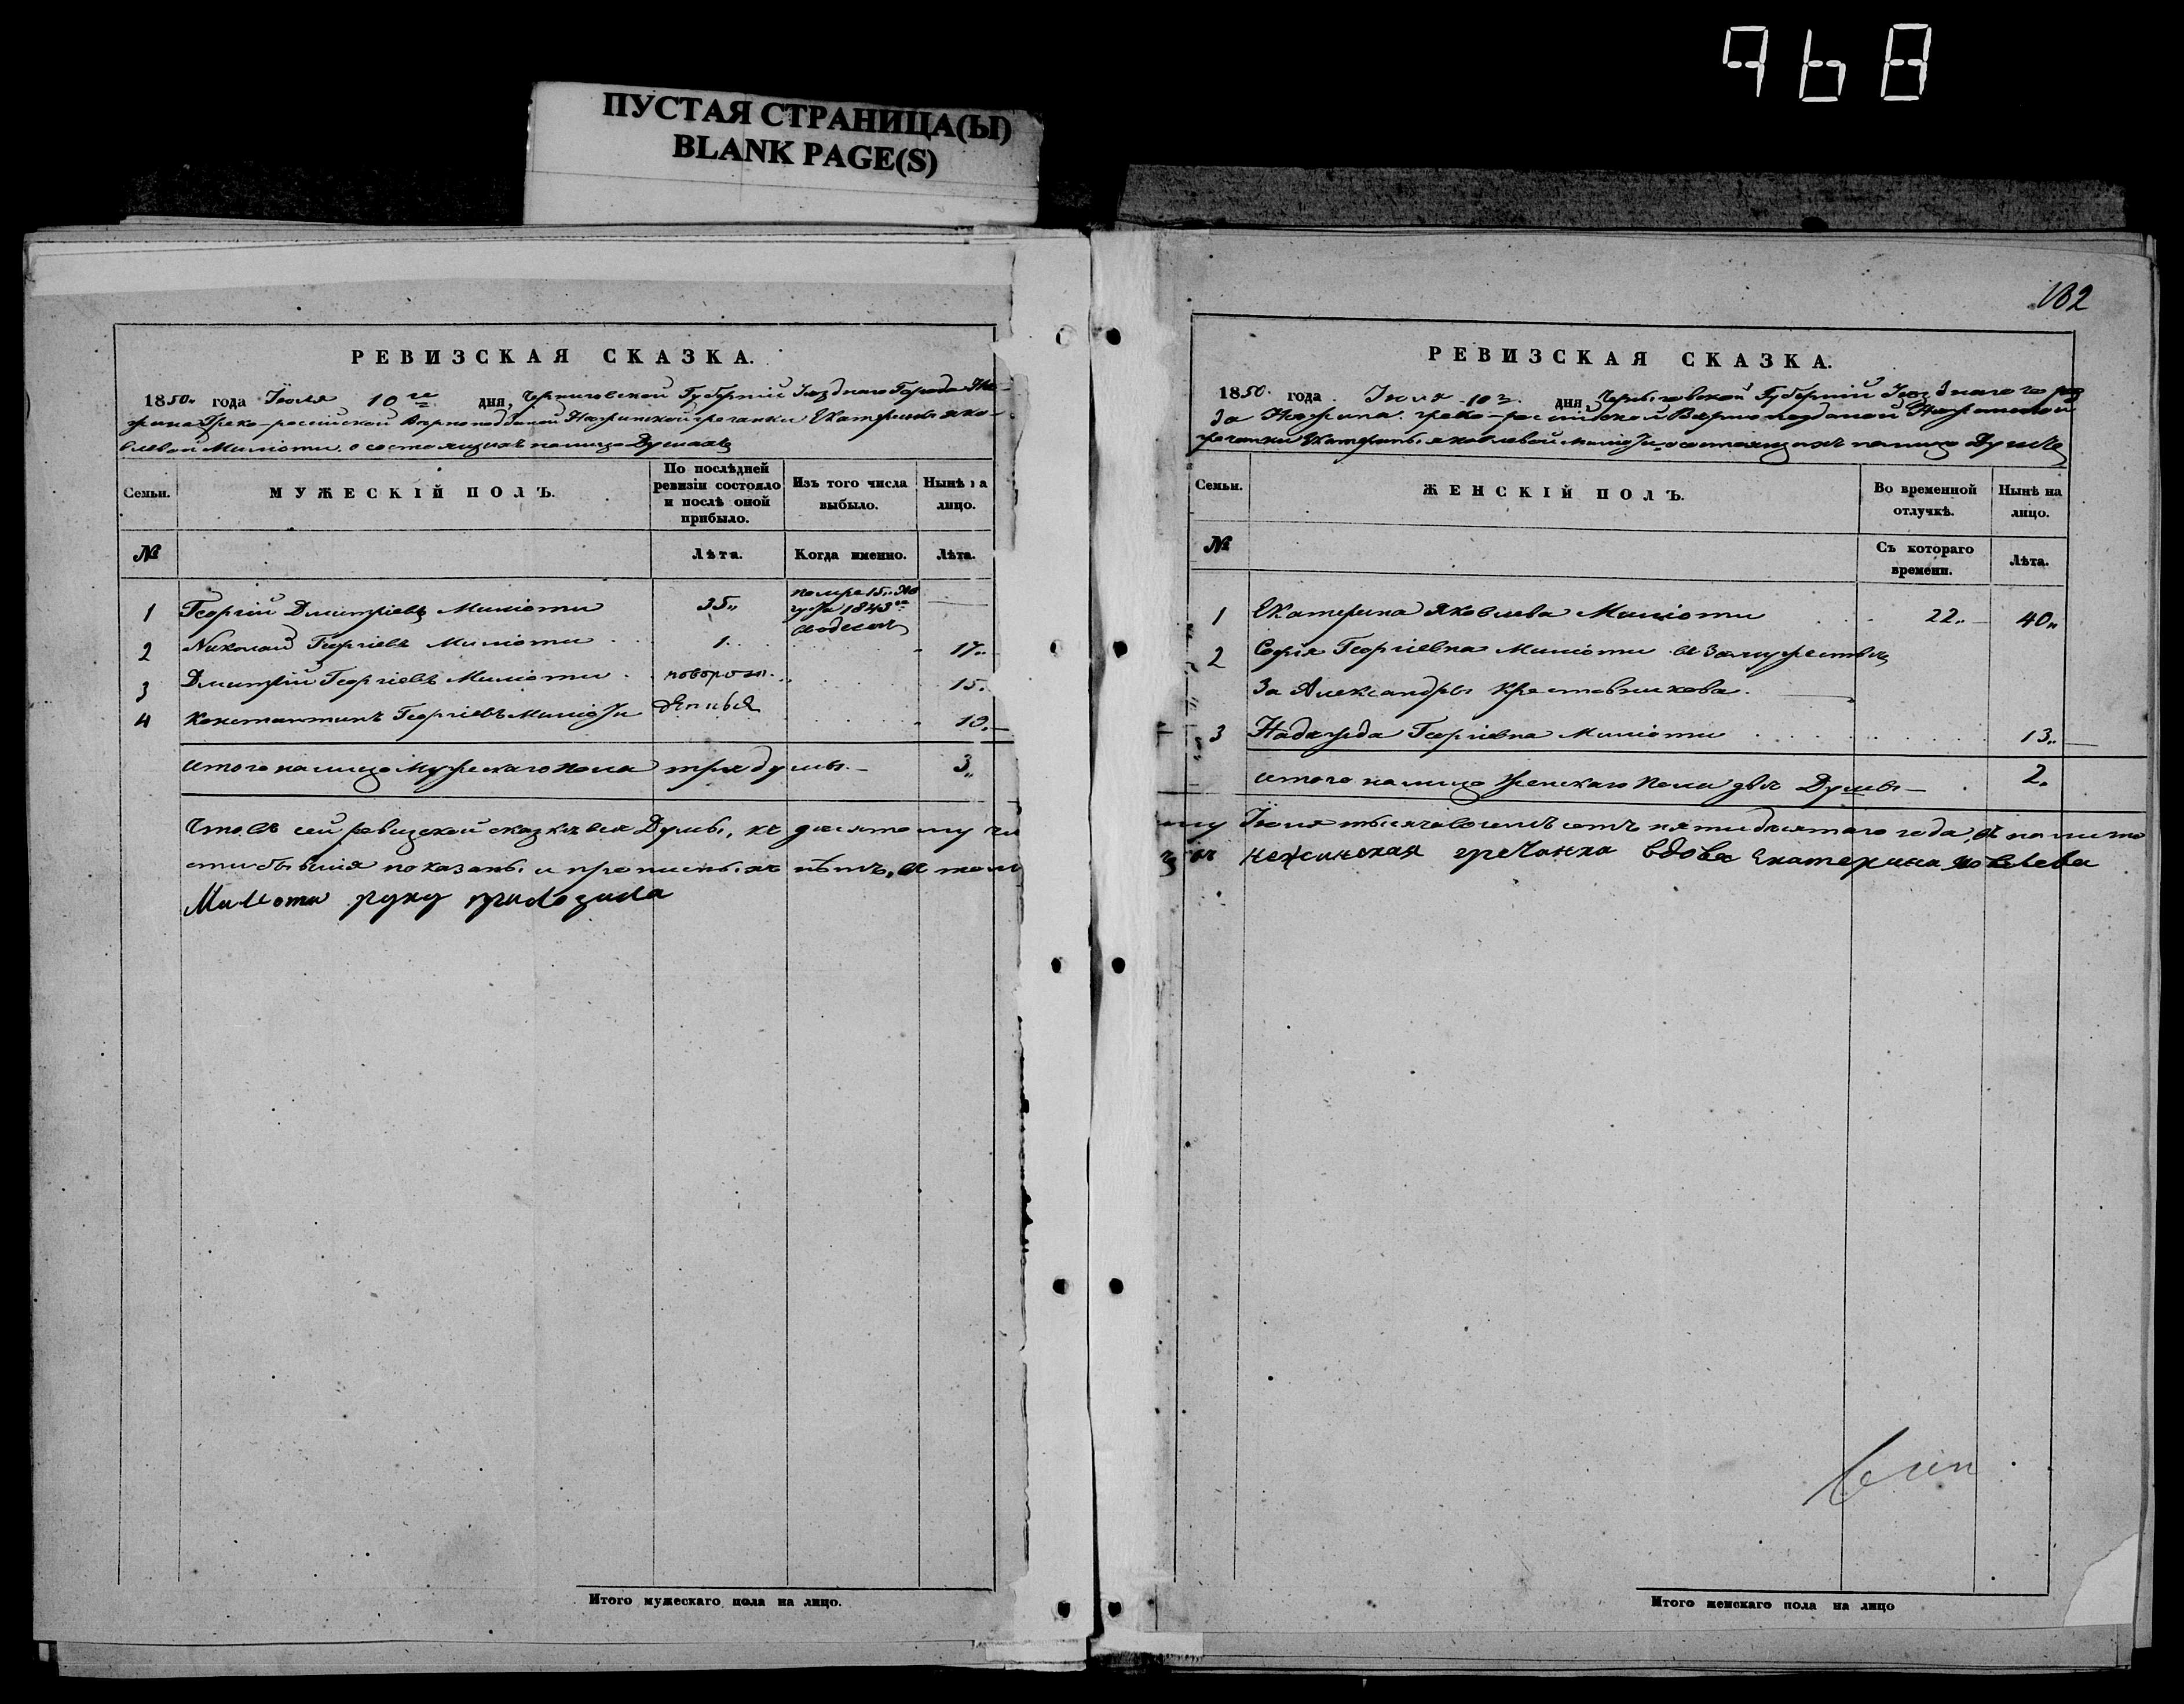 968
ПУСТАЯ СТРАНИЦА(Ы)
BLANK PAGE(S)
РЕВИЗСКАЯ СКАЗКА.
1850 года Іюля 10го дня, Черниговской Губерніи Уезднаго Города Не-
жина Греко-россійской Верноподданой Нежинской гречанки Екатерины Яко-
влевой Миліоти о состоящихъ налицо Душахъ
Семьи.
МУЖЕСКІЙ ПОЛЪ.
По послѣдней ревизіи состояло и послѣ оной прибыло.
Изъ того числа выбыло.
Нынѣ на лицо.
№
Лѣта.
Когда именно.
Лѣта.
1 Георгій Дмитріевъ Миліоти 35 1843го
2 Николай Георгіевъ Миліоти 1. 17
3 Дмитрій Георгіевъ Миліоти новорож. 15.
4 Константинъ Георгіевъ Миліоти 10.
итого налицо Мужескаго пола три душы 3
Что въ сей ревизской сказкѣ все Душы, къ десятому чи
показаны и прописныхъ нѣтъ, в том
Милоти руку приложила
Итого мужескаго пола на лицо.
182
РЕВИЗСКАЯ СКАЗКА.
1850 года Іюля 10 дня Черниговской Губерніи Уезднаго горо
да Нежина греко-россійской Верноподданой Нежинской
гречанки Екатерины Яковлевой Миліоти о состоящихъ налицо Душахъ
Семьи.
ЖЕНСКІЙ ПОЛЪ.
Во временной отлучкѣ.
Нынѣ на лицо.
№
Съ котораго времени.
Лѣта.
1 Екатерина Яковлева Миліоти 22 40
2 Софія Георгіевна Миліоти въ замужествѣ
за Александры Крестовникова.
3 Надежда Георгіевна Миліоти 13
итого налицо Женскаго Пола двѣ Душы 2
Іюля тысяча восемъ сотъ пятидесятаго года,
нежинская гречанка вдова Екатерина Яковлева
Итого женскаго пола на лицо